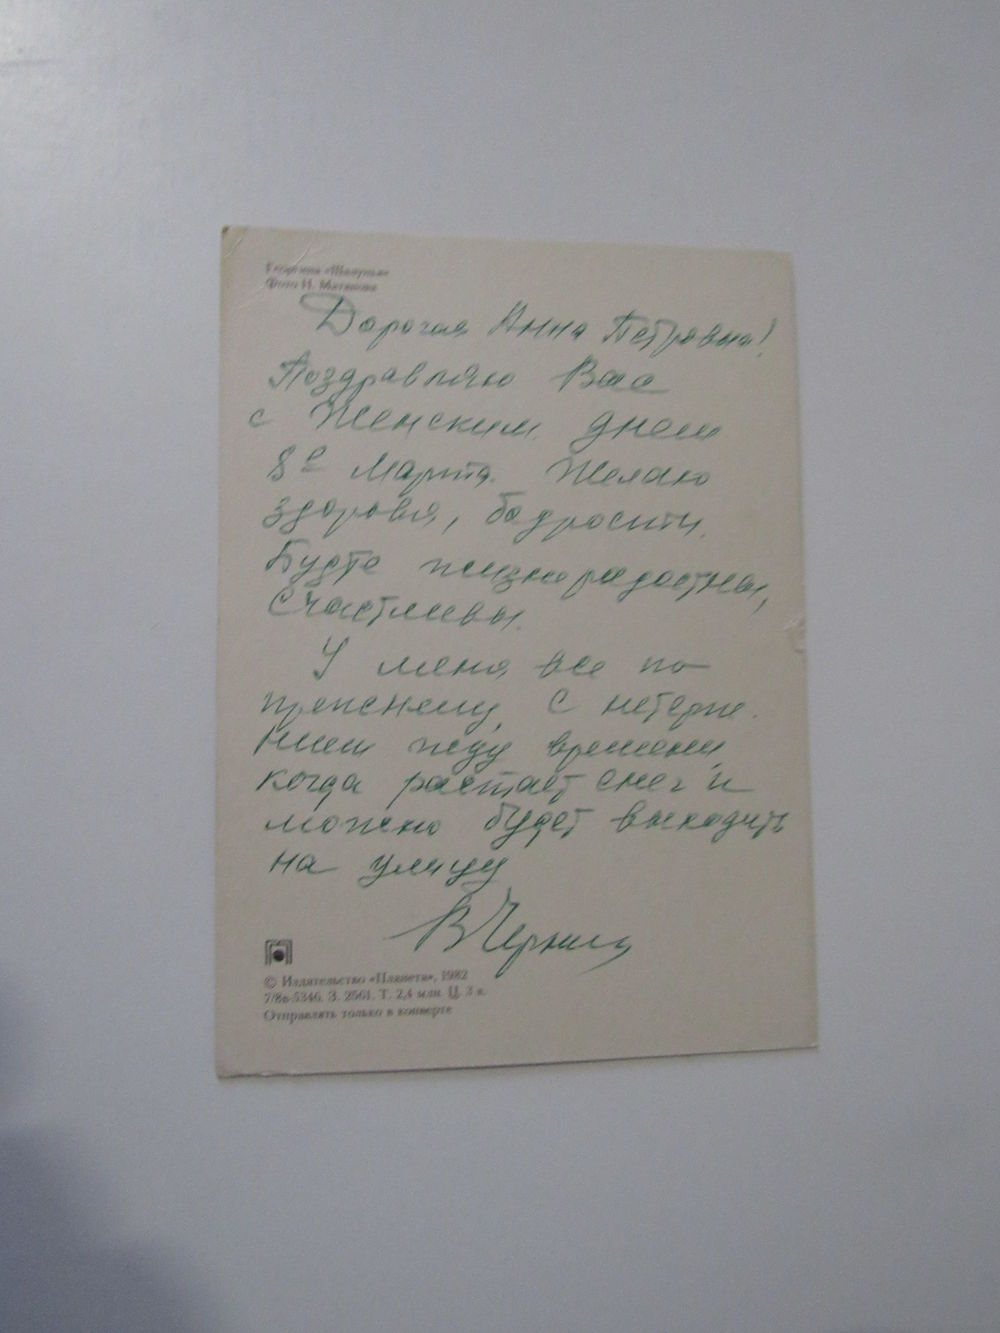 Георгина «Шалунья»
Фото И. Матанова
Дорогая Анна Петровна!
Поздравляю Вас
с Женским днем
8е Марта. Желаю
здоровья, бодрости.
Будте жизнерадостны,
счастливы.
У меня все по
прежнему, с нетерпе.
нием жду времени,
когда растает снег и
можно будет выходить
на улицу
В
© Издательство «Планета», 1982
7/8в-5346. З. 2561. Т. 2,4 млн. Ц. 3 к.
Отправлять только в конверте